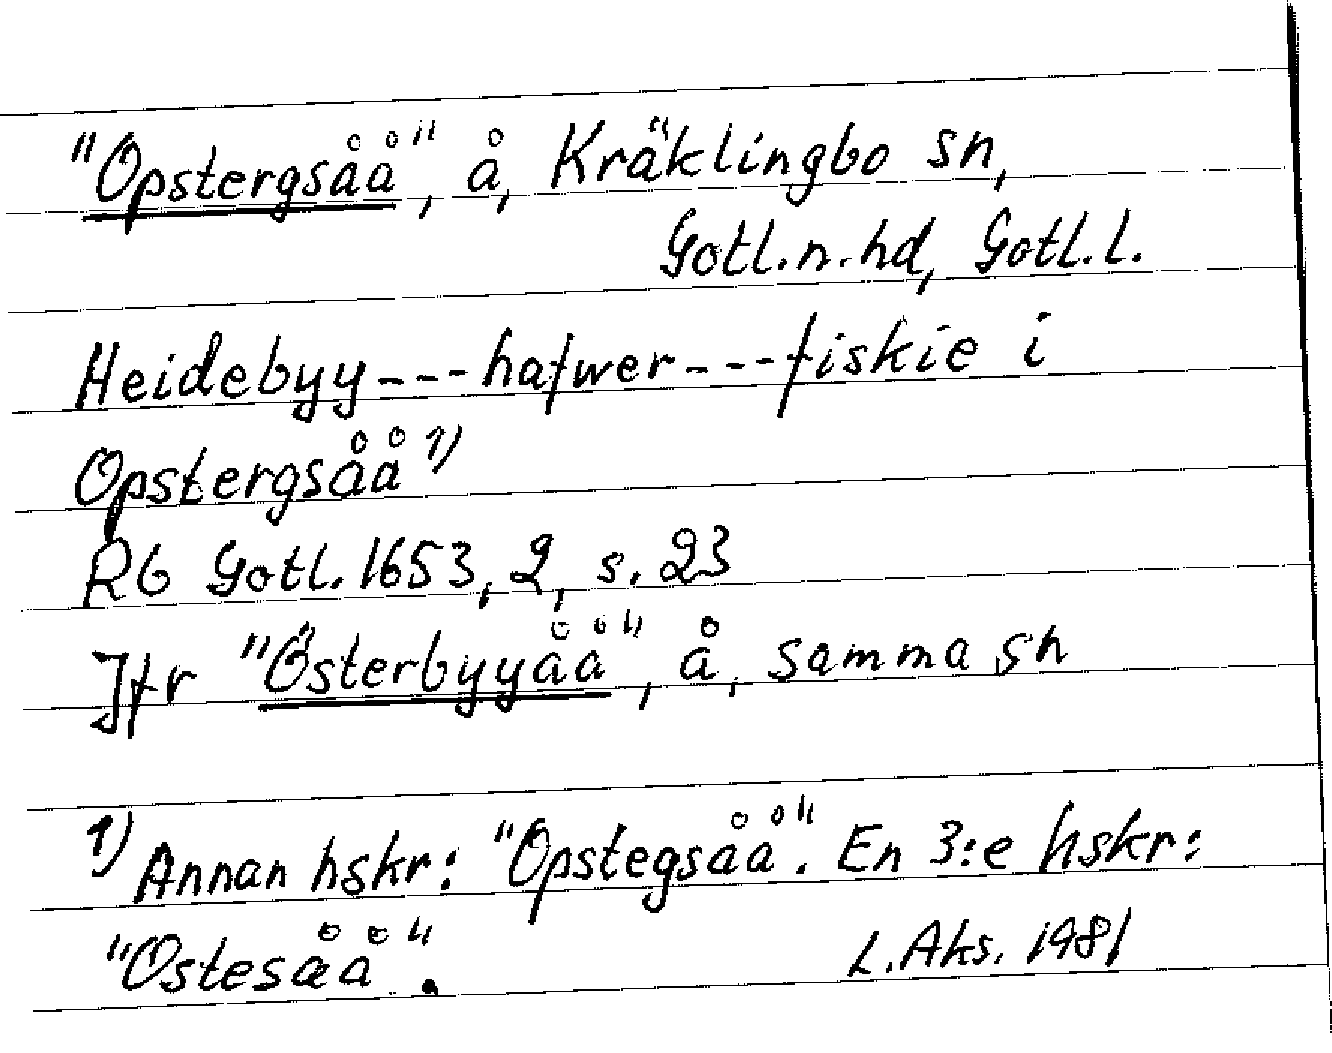 "Opstergsåå", å, Kräklingbo sn,
Gotl.n.hd, Gotl.l.
Heidebyy---hafwer---fiskie i
Opstergsåå 1)
Rb Gotl. 1653, 2, s. 23
Jfr "Österbyyåå", å, samma sn
1) Annan hskr: "Opstegsåå". En 3:e hskr:
"Ostesåå".
L. Aks. 1981